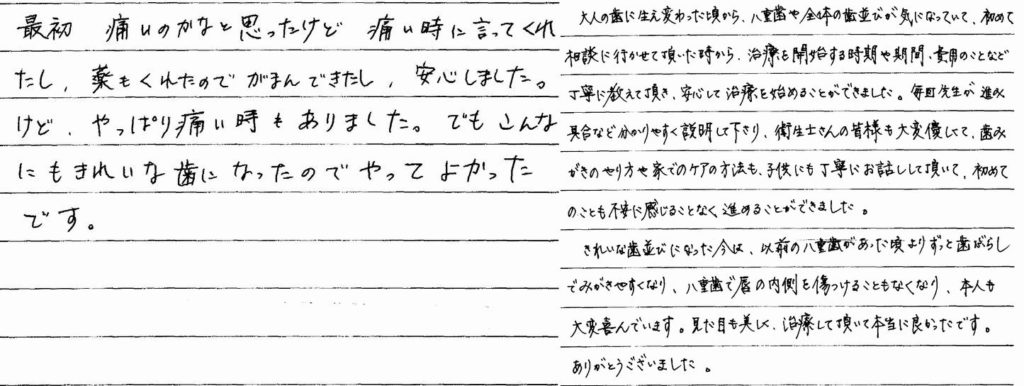 最初 痛いのかなと思ったけど 痛い時に言ってくれ
たし、薬もくれたのでがまんできたし、安心しました。
けど、やっぱり痛い時もありました。でもこんな
にもきれいな歯になったのでやってよかった
です。
大人の歯に生え変わった頃から、八重歯や全体の歯並びが気になっていて、初めて
相談に行かせて頂いた時から、治療を開始する時期や期間、費用のことなど
丁寧に教えて頂き、安心して治療を始めることができました。毎回先生が進み
具合など分かりやすく説明して下さり、衛生士さんの皆様も大変優しくて、歯み
がきのやり方や家でのケアの方法も、子供にも丁寧にお話しして頂いて、初めて
のことも不安に感じることなく進めることができました。
きれいな歯並びになった今は、以前の八重歯があった頃よりずっと歯ブラシ
でみがきやすくなり、八重歯で唇の内側を傷つけることもなくなり、本人も
大変喜んでいます。見た目も美しく、治療して頂いて本当に良かったです。
ありがとうございました。